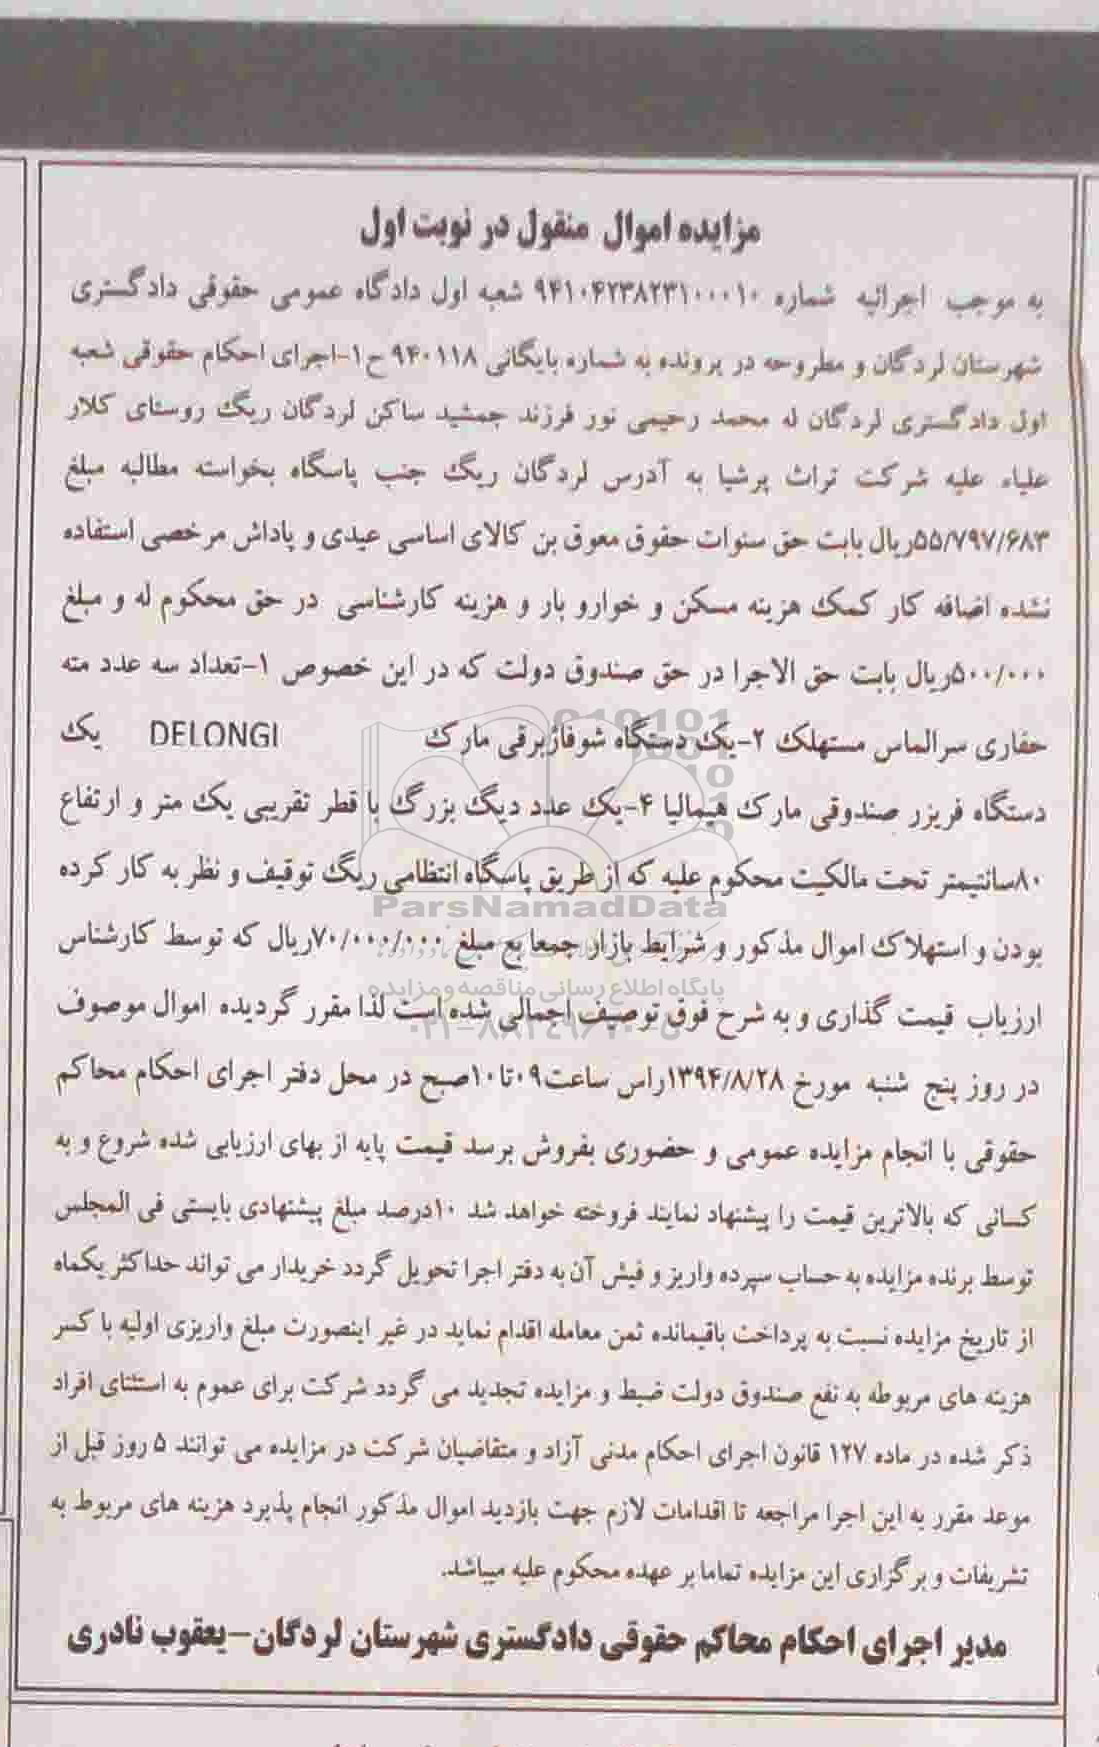 مزایده اموال منقول در نوبت اول
به موجب اجرائیه شماره ۹۴۱۰۴۲۳۸۲۳۱۰۰۰۱۰ شعبه اول دادگاه عمومی حقوقی دادگستری
شهرستان لردگان و مطروحه در پرونده به شماره بایگانی ۹۴۰۱۱۸ ح۱-اجرای احکام حقوقی شعبه
اول دادگستری لردگان له محمد رحیمی نور فرزند جمشید ساکن لردگان ریگ روستای کلار
علیاء علیه شرکت تراث پرشیا به آدرس لردگان ریگ جنب پاسگاه بخواسته مطالبه مبلغ
۵۵/۷۹۷/۶۸۳ریال بابت حق سنوات حقوق معوق بن کالای اساسی عیدی و پاداش مرخصی استفاده
نشده اضافه کار کمک هزینه مسکن و خوارو بار و هزینه کارشناسی در حق محکوم له و مبلغ
۵۰۰/۰۰۰ریال بابت حق الاجرا در حق صندوق دولت که در این خصوص ۱-تعداد سه عدد مته
حفاری سرالماس مستهلک ۲-یک دستگاه شوفاژبرقی مارک DELONGI یک
دستگاه فریزر صندوقی مارک هیمالیا ۴-یک عدد دیگ بزرگ با قطر تقریبی یک متر و ارتفاع
۸۰سانتیمتر تحت مالکیت محکوم علیه که از طریق پاسگاه انتظامی ریگ توقیف و نظر به کار کرده
ParsNamadData
بودن و استهلاک اموال مذکور و شرایط بازار جمعا بع مبلغ ۷۰/۰۰۰/۰۰۰ریال که توسط کارشناس
پایگاه اطلاع رسانی مناقصه و مزایده
ارزیاب قیمت گذاری و به شرح فوق توصیف اجمالی شده است لذا مقرر گردیده اموال موصوف
در روز پنج شنبه مورخ ۱۳۹۴/۸/۲۸راس ساعت۰۹تا۱۰صبح در محل دفتر اجرای احکام محاکم
حقوقی با انجام مزایده عمومی و حضوری بفروش برسد قیمت پایه از بهای ارزیابی شده شروع و به
کسانی که بالاترین قیمت را پیشنهاد نمایند فروخته خواهد شد ۱۰درصد مبلغ پیشنهادی بایستی فی المجلس
توسط برنده مزایده به حساب سپرده واریز و فیش آن به دفتر اجرا تحویل گردد خریدار می تواند حداکثر یکماه
از تاریخ مزایده نسبت به پرداخت باقیمانده ثمن معامله اقدام نماید در غیر اینصورت مبلغ واریزی اولیه با کسر
هزینه های مربوطه به نفع صندوق دولت ضبط و مزایده تجدید می گردد شرکت برای عموم به استثنای افراد
ذکر شده در ماده ۱۲۷ قانون اجرای احکام مدنی آزاد و متقاضیان شرکت در مزایده می توانند ۵ روز قبل از
موعد مقرر به این اجرا مراجعه تا اقدامات لازم جهت بازدید اموال مذکور انجام پذیرد هزینه های مربوط به
تشریفات و برگزاری این مزایده تماما بر عهده محکوم علیه میباشد.
مدیر اجرای احکام محاکم حقوقی دادگستری شهرستان لردگان-یعقوب نادری